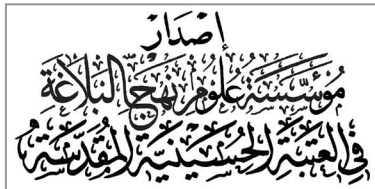 إِصْدَارُ
مُؤَسَّسَةِ عُلُومِ نَهْجِ الْبَلَاغَةِ
فِي الْعَتَبَةِ الْحُسَيْنِيَّةِ الْمُقَدَّسَةِ